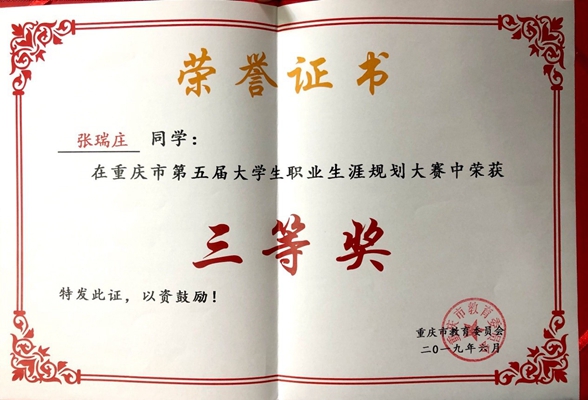 荣誉证书
张瑞庄 同学：
在重庆市第五届大学生职业生涯规划大赛中荣获
三等奖
特发此证，以资鼓励！
重庆市教育委员会
二〇一九年六月